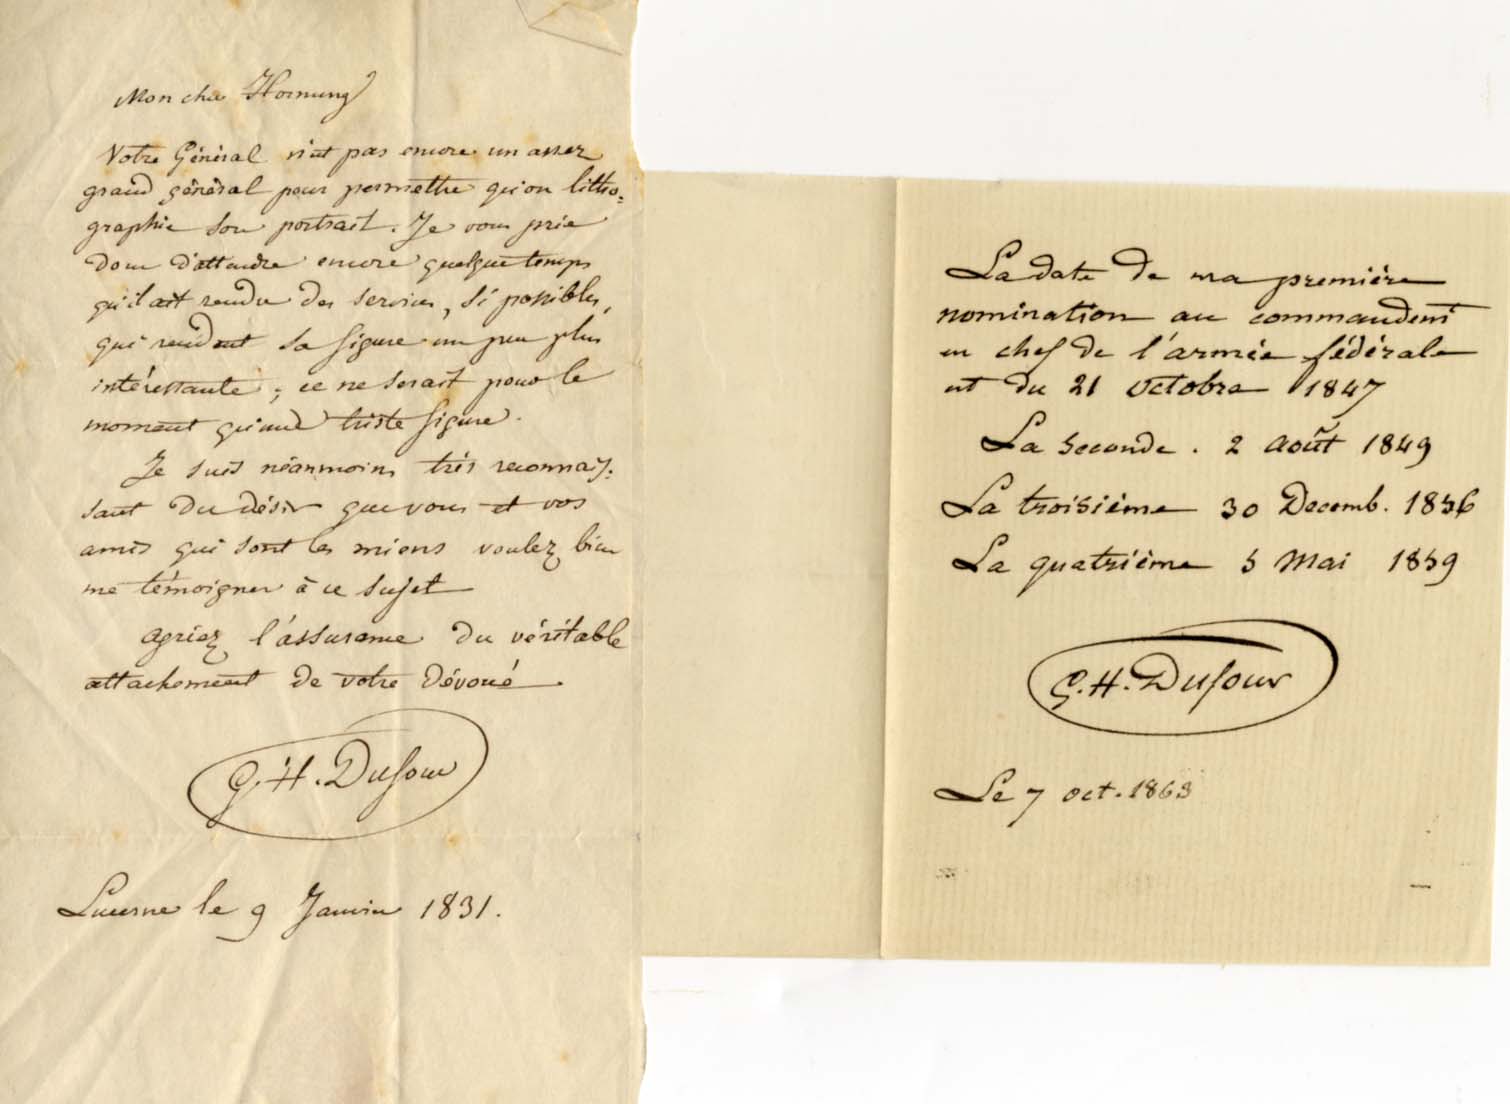 Mon cher Hornung
Votre Général n'est pas encore un assez
grand général pour permettre qu'on litho=
graphie son portrait. Je vous prie
donc d'attendre encore quelque temps
qu'il ait rendu des services, si possible,
qui rendent sa figure un peu plus
intéressante; ce ne serait pour le
moment qu'une triste figure.
Je suis néanmoins très reconnais=
sant du désir que vous et vos
amis qui sont les miens voulez bien
me témoigner à ce sujet
agriez l'assurance du véritable
attachement de votre dévoué.
G.H. Dufour
Lucerne le 9 Janvier 1831.
La date de ma première
nomination au commandemt
en chef de l'armée fédérale
est du 21 octobre 1847
La seconde. 2 août 1849
La troisième 30 Decemb. 1856
La quatrième 5 Mai 1859
G.H. Dufour
Le 7 oct. 1863